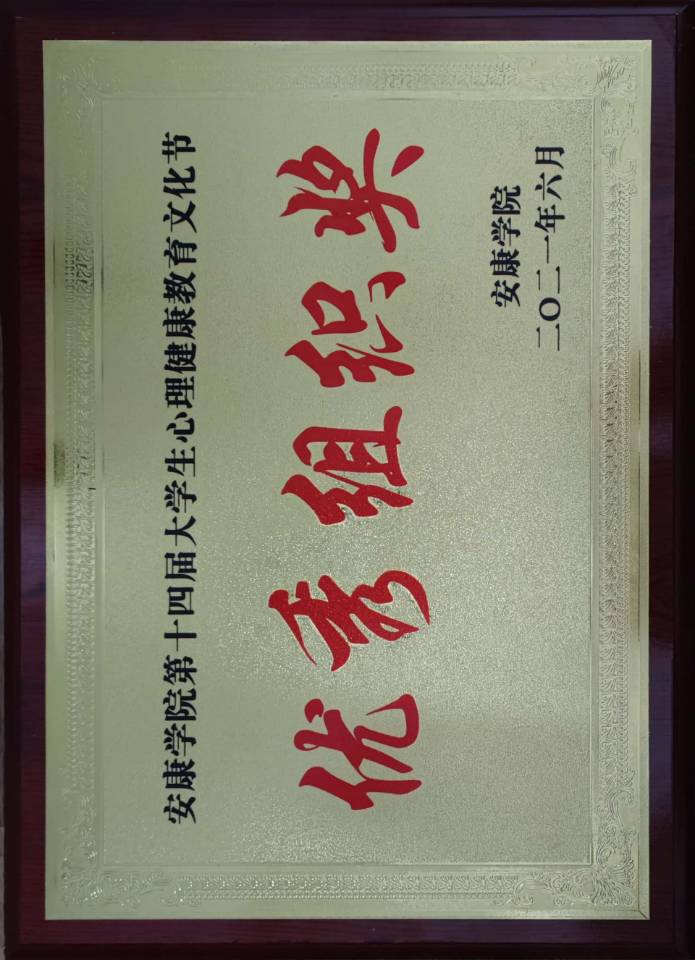 安康学院第十四届大学生心理健康教育文化节
优秀组织奖
安康学院
二〇二一年六月